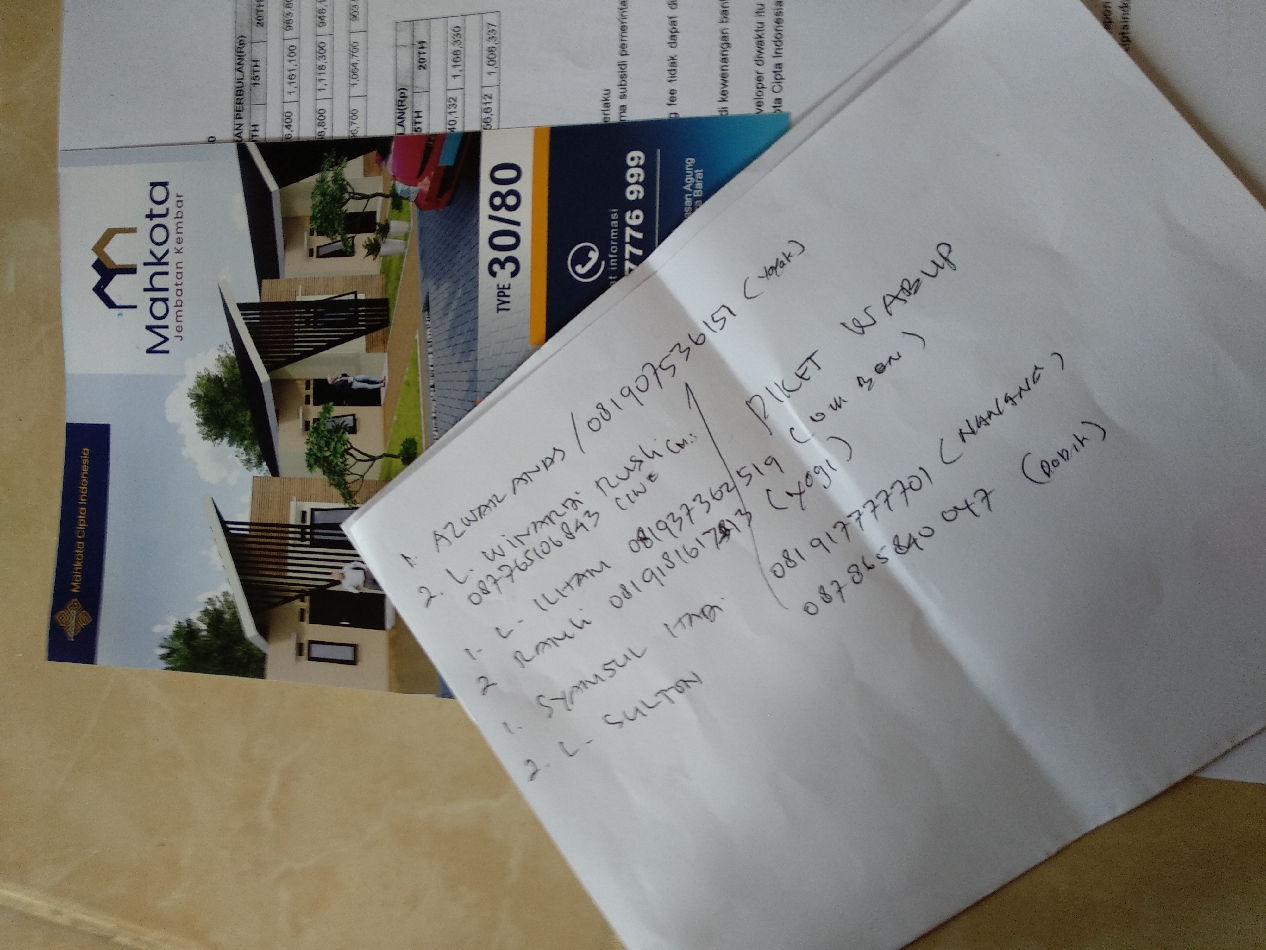 Mahkota Cipta Indonesia
Mahkota
Jembatan Kembar
TYPE 30/80
at informasi
7776 999
asan Agung
a Barat
0
RAN PERBULAN(Rp)
TH 15TH 20TH
6,400 1,161,100 983,8
8,800 1,118,300 948,1
6,700 1,064,700 903,
LAN(Rp)
5TH 20TH
40,132 1,168,330
56,612 1,008,337
erlaku
ma subsidi pemerinta
g fee tidak dapat di
di kewenangan bank
veloper diwaktu itu
ota Cipta Indonesia
epon
ciptaindo
1. AZWAR ANAS / 081907536151
2. L. WINARDI
087765106843
PIKET WABUP
1. L. ILHAM 081937362519 (om Ben)
2. RAMLI (YOGI)
1. SYAMSUL HADI 081917777701 (NANANG)
2. L. SULTON 087865840047 (Robih)